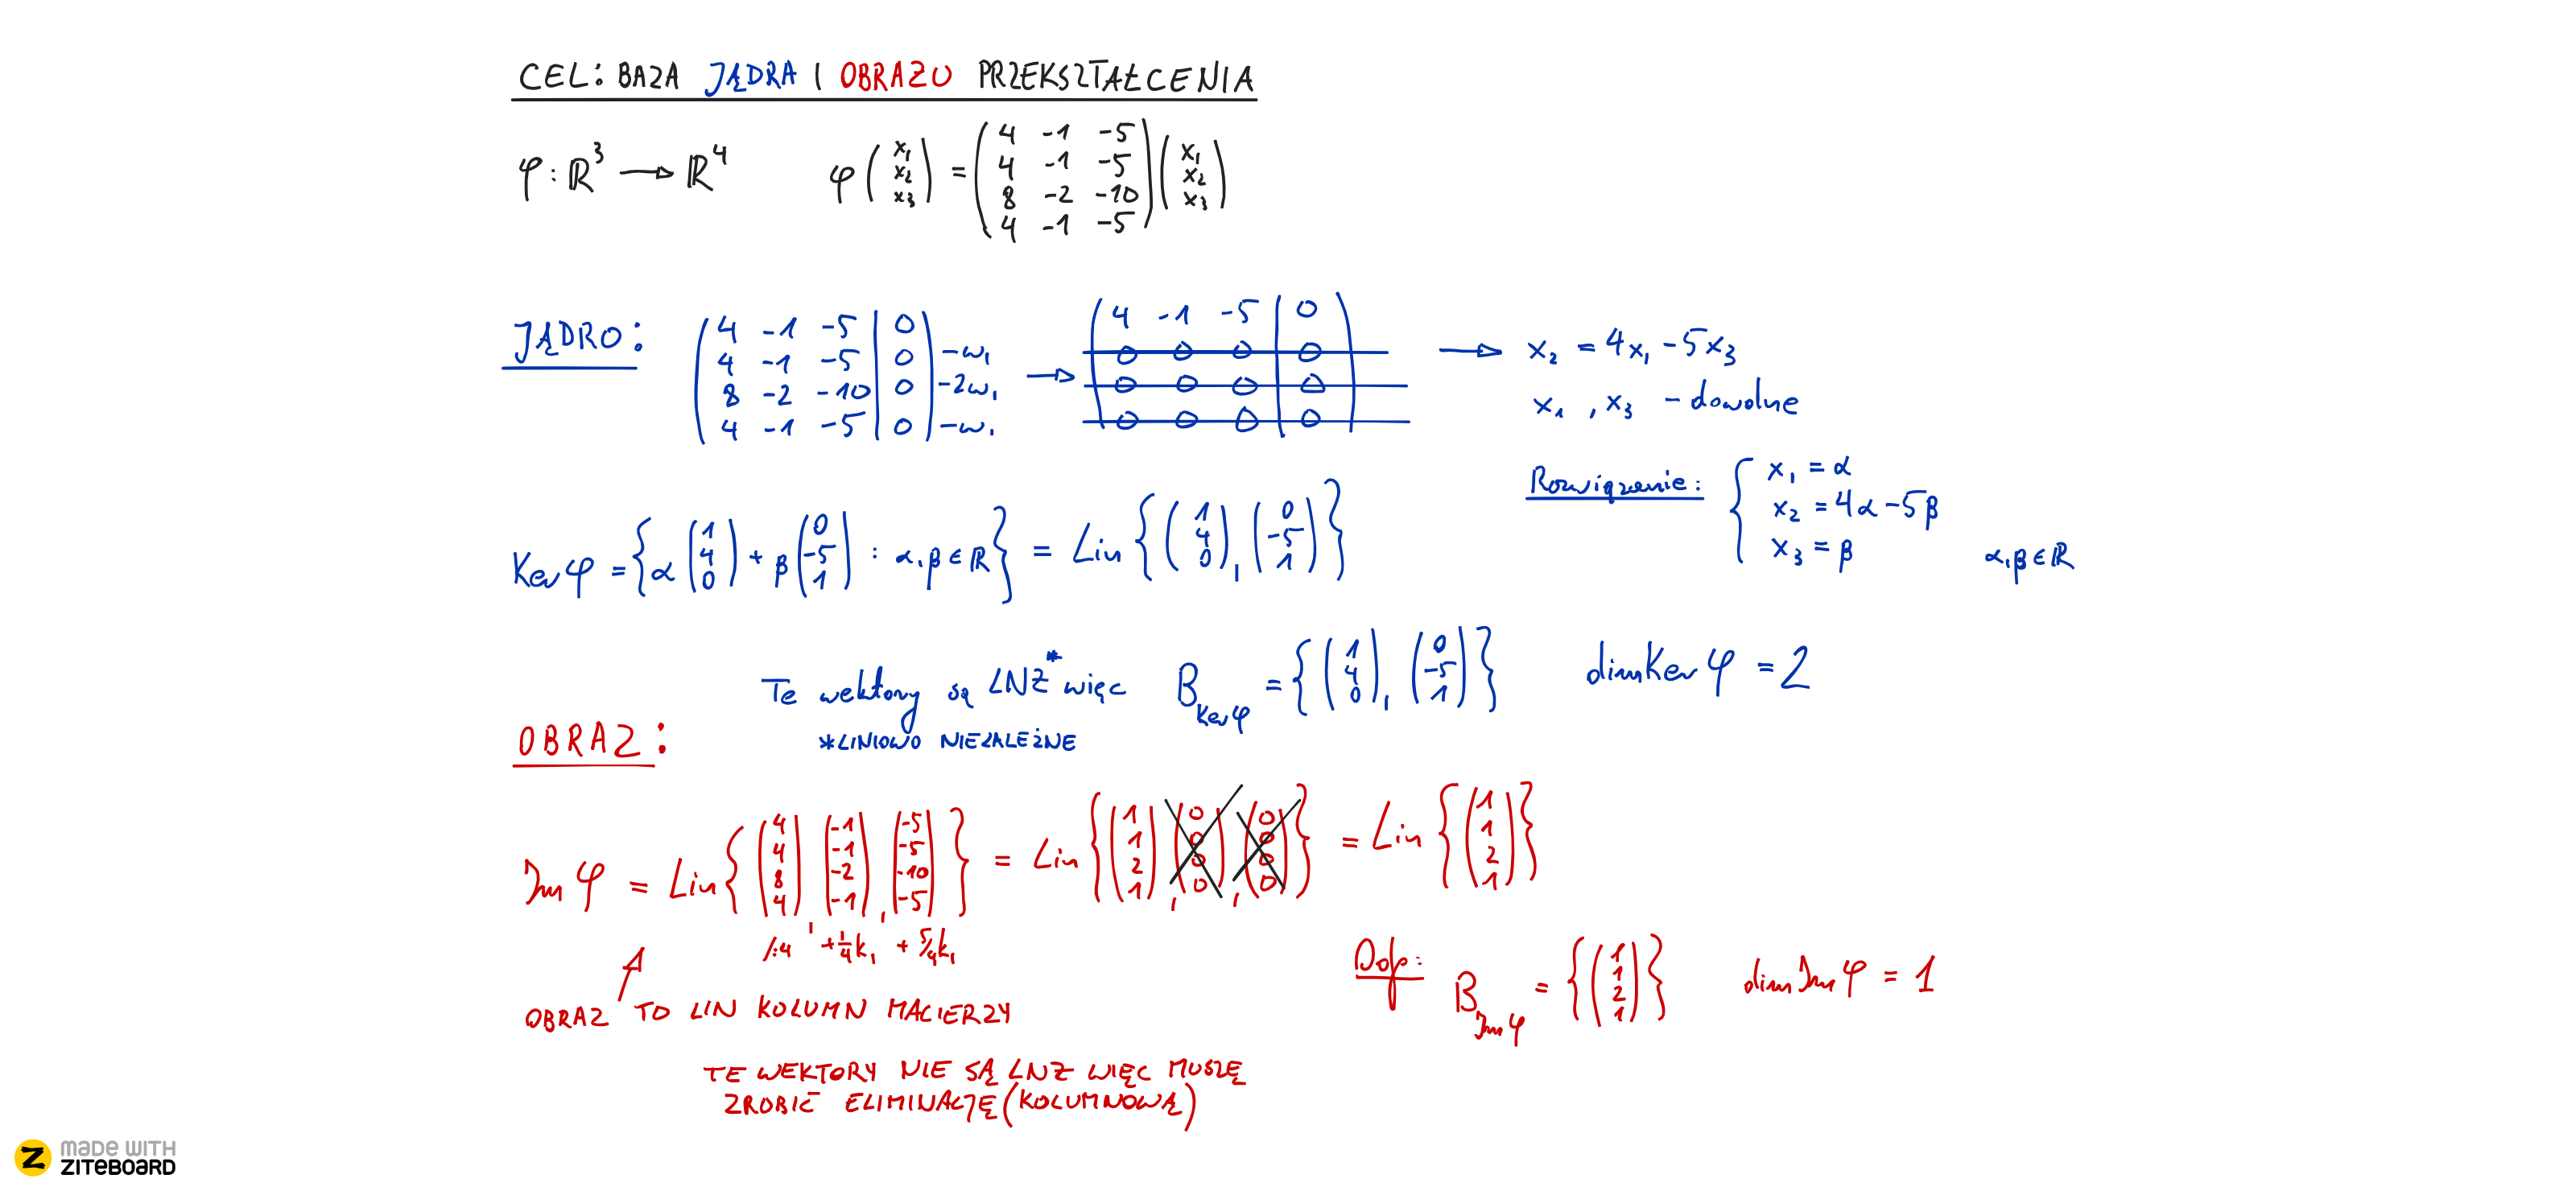 CEL: BAZA JĄDRA I OBRAZU PRZEKSZTAŁCENIA
φ : ℝ³ → ℝ⁴   φ(x₁ x₂ x₃) = (4 -1 -5; 4 -1 -5; 8 -2 -10; 4 -1 -5)(x₁ x₂ x₃)
JĄDRO:
(4 -1 -5 | 0; 4 -1 -5 | 0; 8 -2 -10 | 0; 4 -1 -5 | 0) -w₁ -2w₁ -w₁ → (4 -1 -5 | 0; 0 0 0 | 0; 0 0 0 | 0; 0 0 0 | 0) → x₂ = 4x₁ - 5x₃
x₁, x₃ - dowolne
Rozwiązanie: { x₁ = α
x₂ = 4α - 5β
x₃ = β   α, β ∈ ℝ
Ker φ = {α(1 4 0) + β(0 -5 1) : α, β ∈ ℝ} = Lin{(1 4 0), (0 -5 1)}
Te wektory są LNZ* więc B Ker φ = {(1 4 0), (0 -5 1)}   dim Ker φ = 2
*LINIOWO NIEZALEŻNE
OBRAZ:
Im φ = Lin{(4 4 8 4), (-1 -1 -2 -1), (-5 -5 -10 -5)} = Lin{(1 1 2 1), (0 0 0 0), (0 0 0 0)} = Lin{(1 1 2 1)}
/:4 +1/4 k₁ + 5/4 k₁
OBRAZ TO LIN KOLUMN MACIERZY
Odp: B Im φ = {(1 1 2 1)}   dim Im φ = 1
TE WEKTORY NIE SĄ LNZ WIĘC MUSZĘ
ZROBIĆ ELIMINACJĘ (KOLUMNOWĄ)
MADE WITH
ZITEBOARD